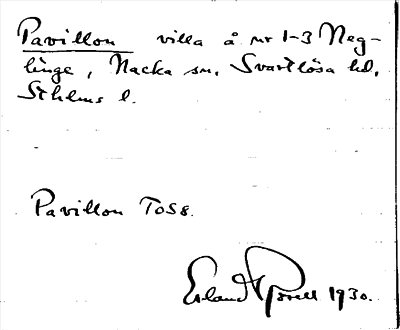 Pavillon villa å nr 1-3 Neg-
linge, Nacka sn. Svartlösa hd,
Sthlms l.
Pavillon TOS8.
Erland 1930.